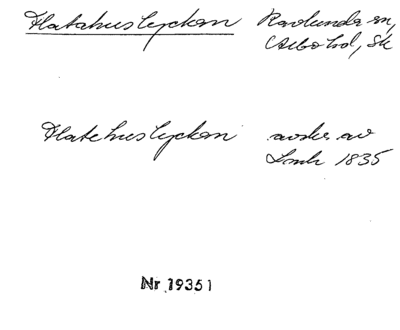 Flatahuslyckan Ravlunda sn,
Albo hd, Sk
Flatehuslyckan avsku av
Lmh 1835
Nr 19351